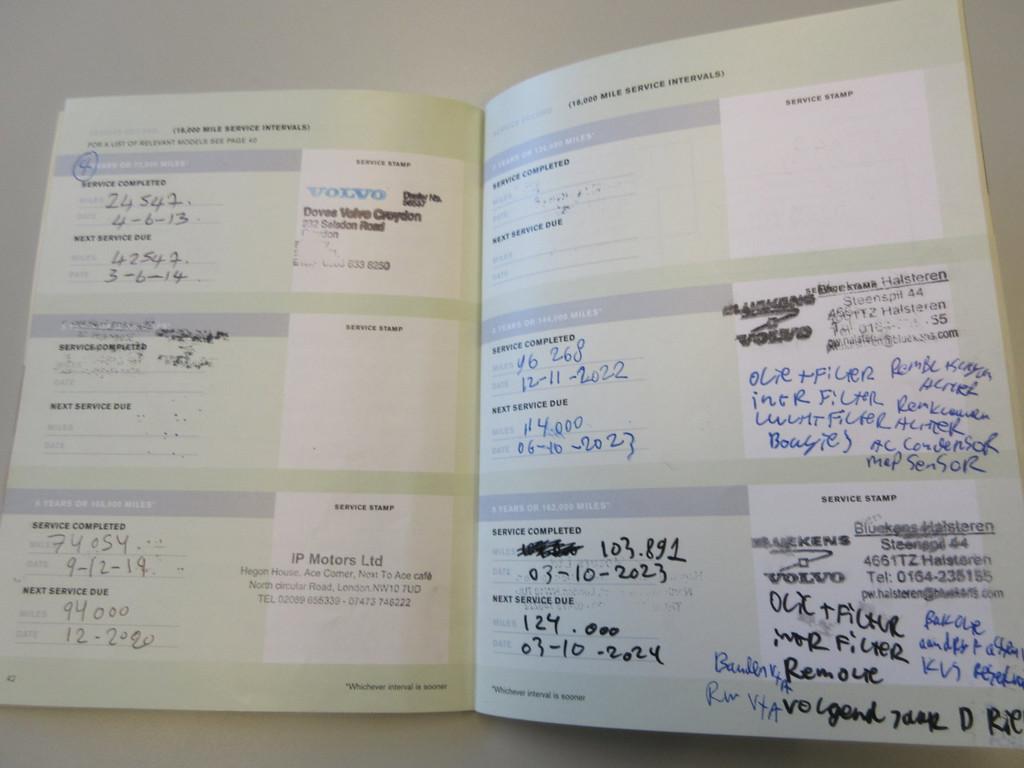 (18,000 MILE SERVICE INTERVALS)
FOR A LIST OF RELEVANT MODELS SEE PAGE 40
4 YEARS OR 72,000 MILES*
SERVICE COMPLETED
MILES 24547.
DATE 4-6-13.
NEXT SERVICE DUE
MILES 42547.
DATE 3-6-14.
SERVICE STAMP
VOLVO
Doves Volvo Croydon
232 Selsdon Road
633 8250
SERVICE COMPLETED
DATE
NEXT SERVICE DUE
MILES
DATE
SERVICE STAMP
6 YEARS OR 108,000 MILES*
SERVICE COMPLETED
MILES 74054
DATE 9-12-19.
NEXT SERVICE DUE
MILES 94000
DATE 12-2020
SERVICE STAMP
IP Motors Ltd
Hegon House, Ace Corner, Next To Ace café
North circular Road, London.NW10 7UD
TEL.02089 656339 - 07473 746222
42
*Whichever interval is sooner
(18,000 MILE SERVICE INTERVALS)
7 YEARS OR 126,000 MILES*
SERVICE COMPLETED
MILES
DATE
NEXT SERVICE DUE
MILES
DATE
SERVICE STAMP
8 YEARS OR 144,000 MILES*
SERVICE COMPLETED
MILES 96 268
DATE 12-11-2022
NEXT SERVICE DUE
MILES 114.000
DATE 06-10-2023
SERVICE STAMP
BLUEKENS
VOLVO
Bluekens Halsteren
Steenspil 44
4661TZ Halsteren
Tel: 0164- 55
pw.halsteren@bluekens.com
OLie + FiLTER
inTR FiLTER
LUCHTFiLTER
Bougies
ACHTER
Remklauwen
ACHTER
AC CondenSOR
map SenSOR
9 YEARS OR 162,000 MILES*
SERVICE COMPLETED
MILES 103.891
DATE 03-10-2023
NEXT SERVICE DUE
MILES 124.000
DATE 03-10-2024
SERVICE STAMP
BLUEKENS
VOLVO
Bluekens Halsteren
Steenspil 44
4661TZ Halsteren
Tel: 0164-235155
pw.halsteren@bluekens.com
OLiE + FiLTER
inTR FiLTER
Remolie
Banden V+A
Rem V+A
volgend jaar D Rie
*Whichever interval is sooner